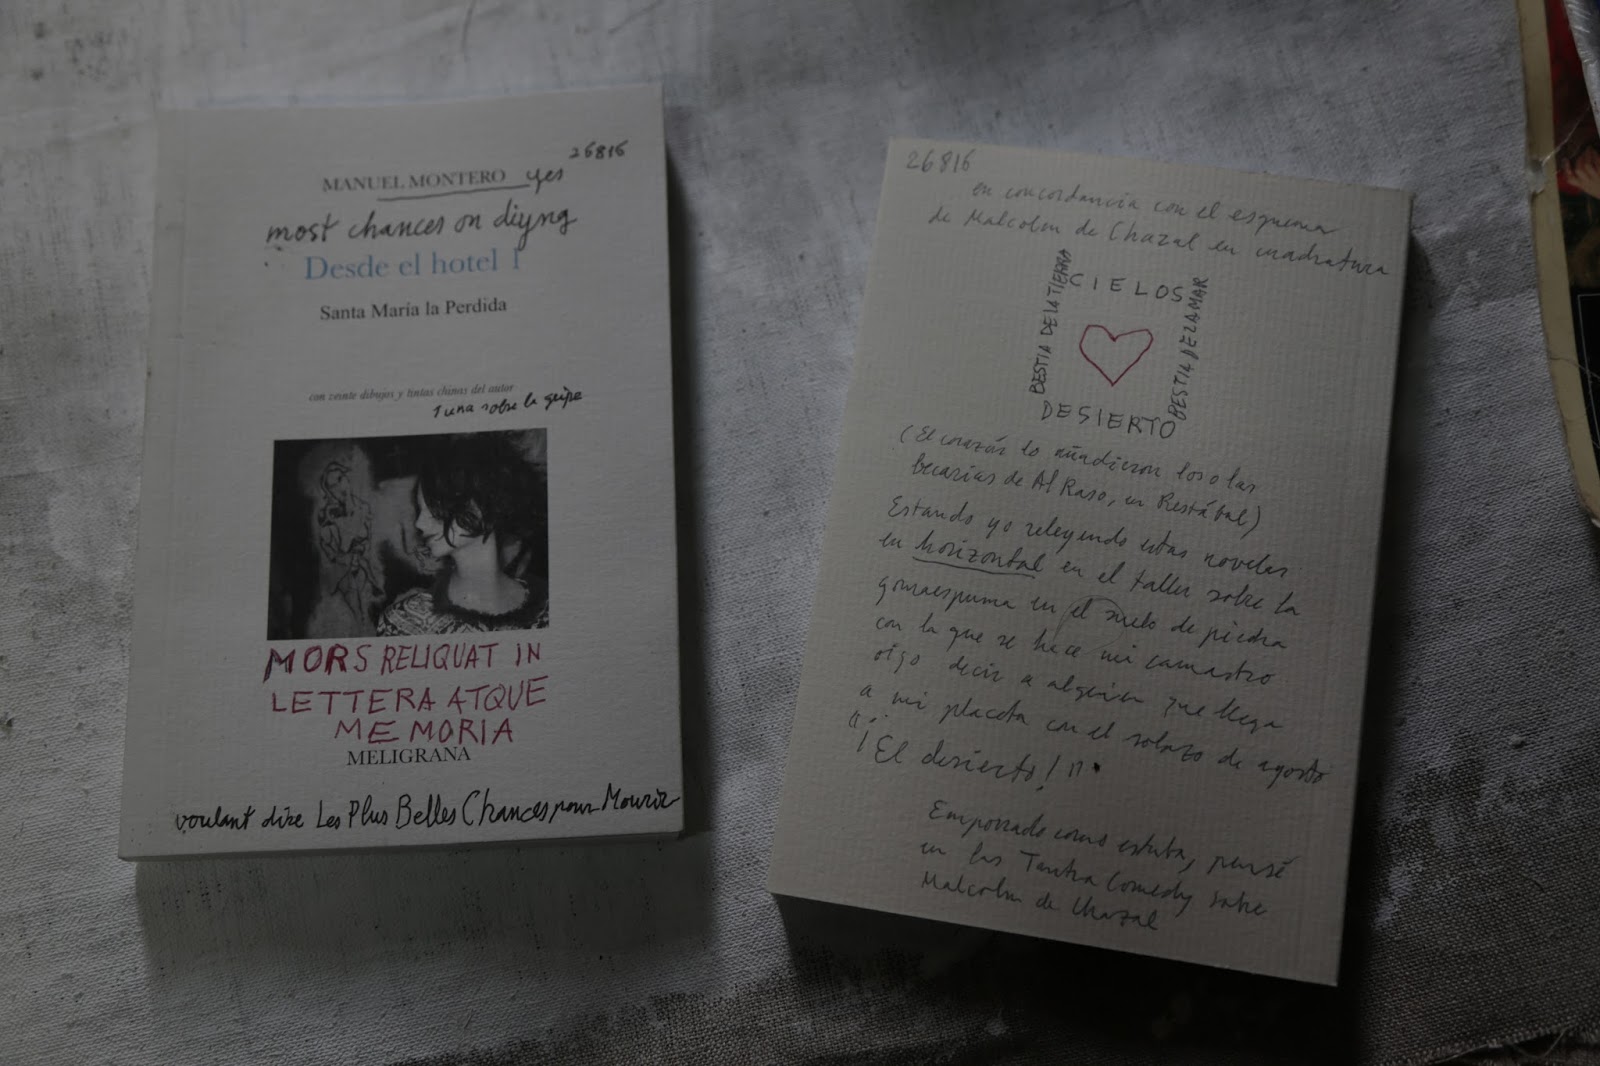 26816
MANUEL MONTERO yes
most chances on diyng
Desde el hotel 1
Santa María la Perdida
con veinte dibujos y tintas chinas del autor
1 una sobre la gripe
MORS RELIQUAT IN
LETTERA ATQUE
MEMORIA
MELIGRANA
voulant dire Les Plus Belles Chances pour Mourir
26816
en concordancia con el esquema
de Malcolm de Chazal en cuadratura
CIELOS
BESTIA DE LA TIERRA
BESTIA DE LA MAR
DESIERTO
(El corazón lo añadieron los o las
becarias de Al Raso, en Restábal)
Estando yo releyendo estas novelas
en horizontal en el taller sobre la
gomaespuma en el suelo de piedra
con la que se hace mi camastro
oigo decir a alguien que llega
a mi placeta con el solazo de agosto
"¡El desierto!".
Emporrado como estaba, pensé
en las Tantra Comedy sobre
Malcolm de Chazal